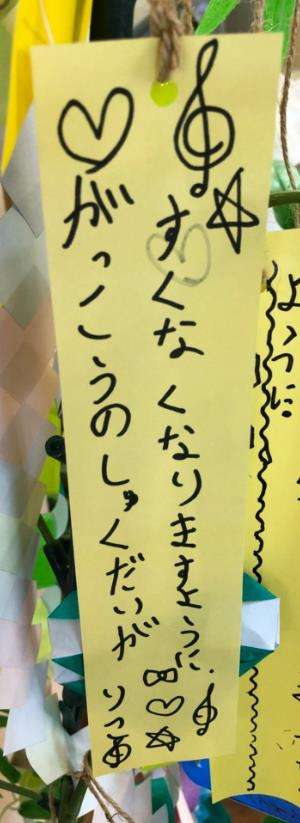 がっこうのしゅくだいが
すくなくなりますように.
ように